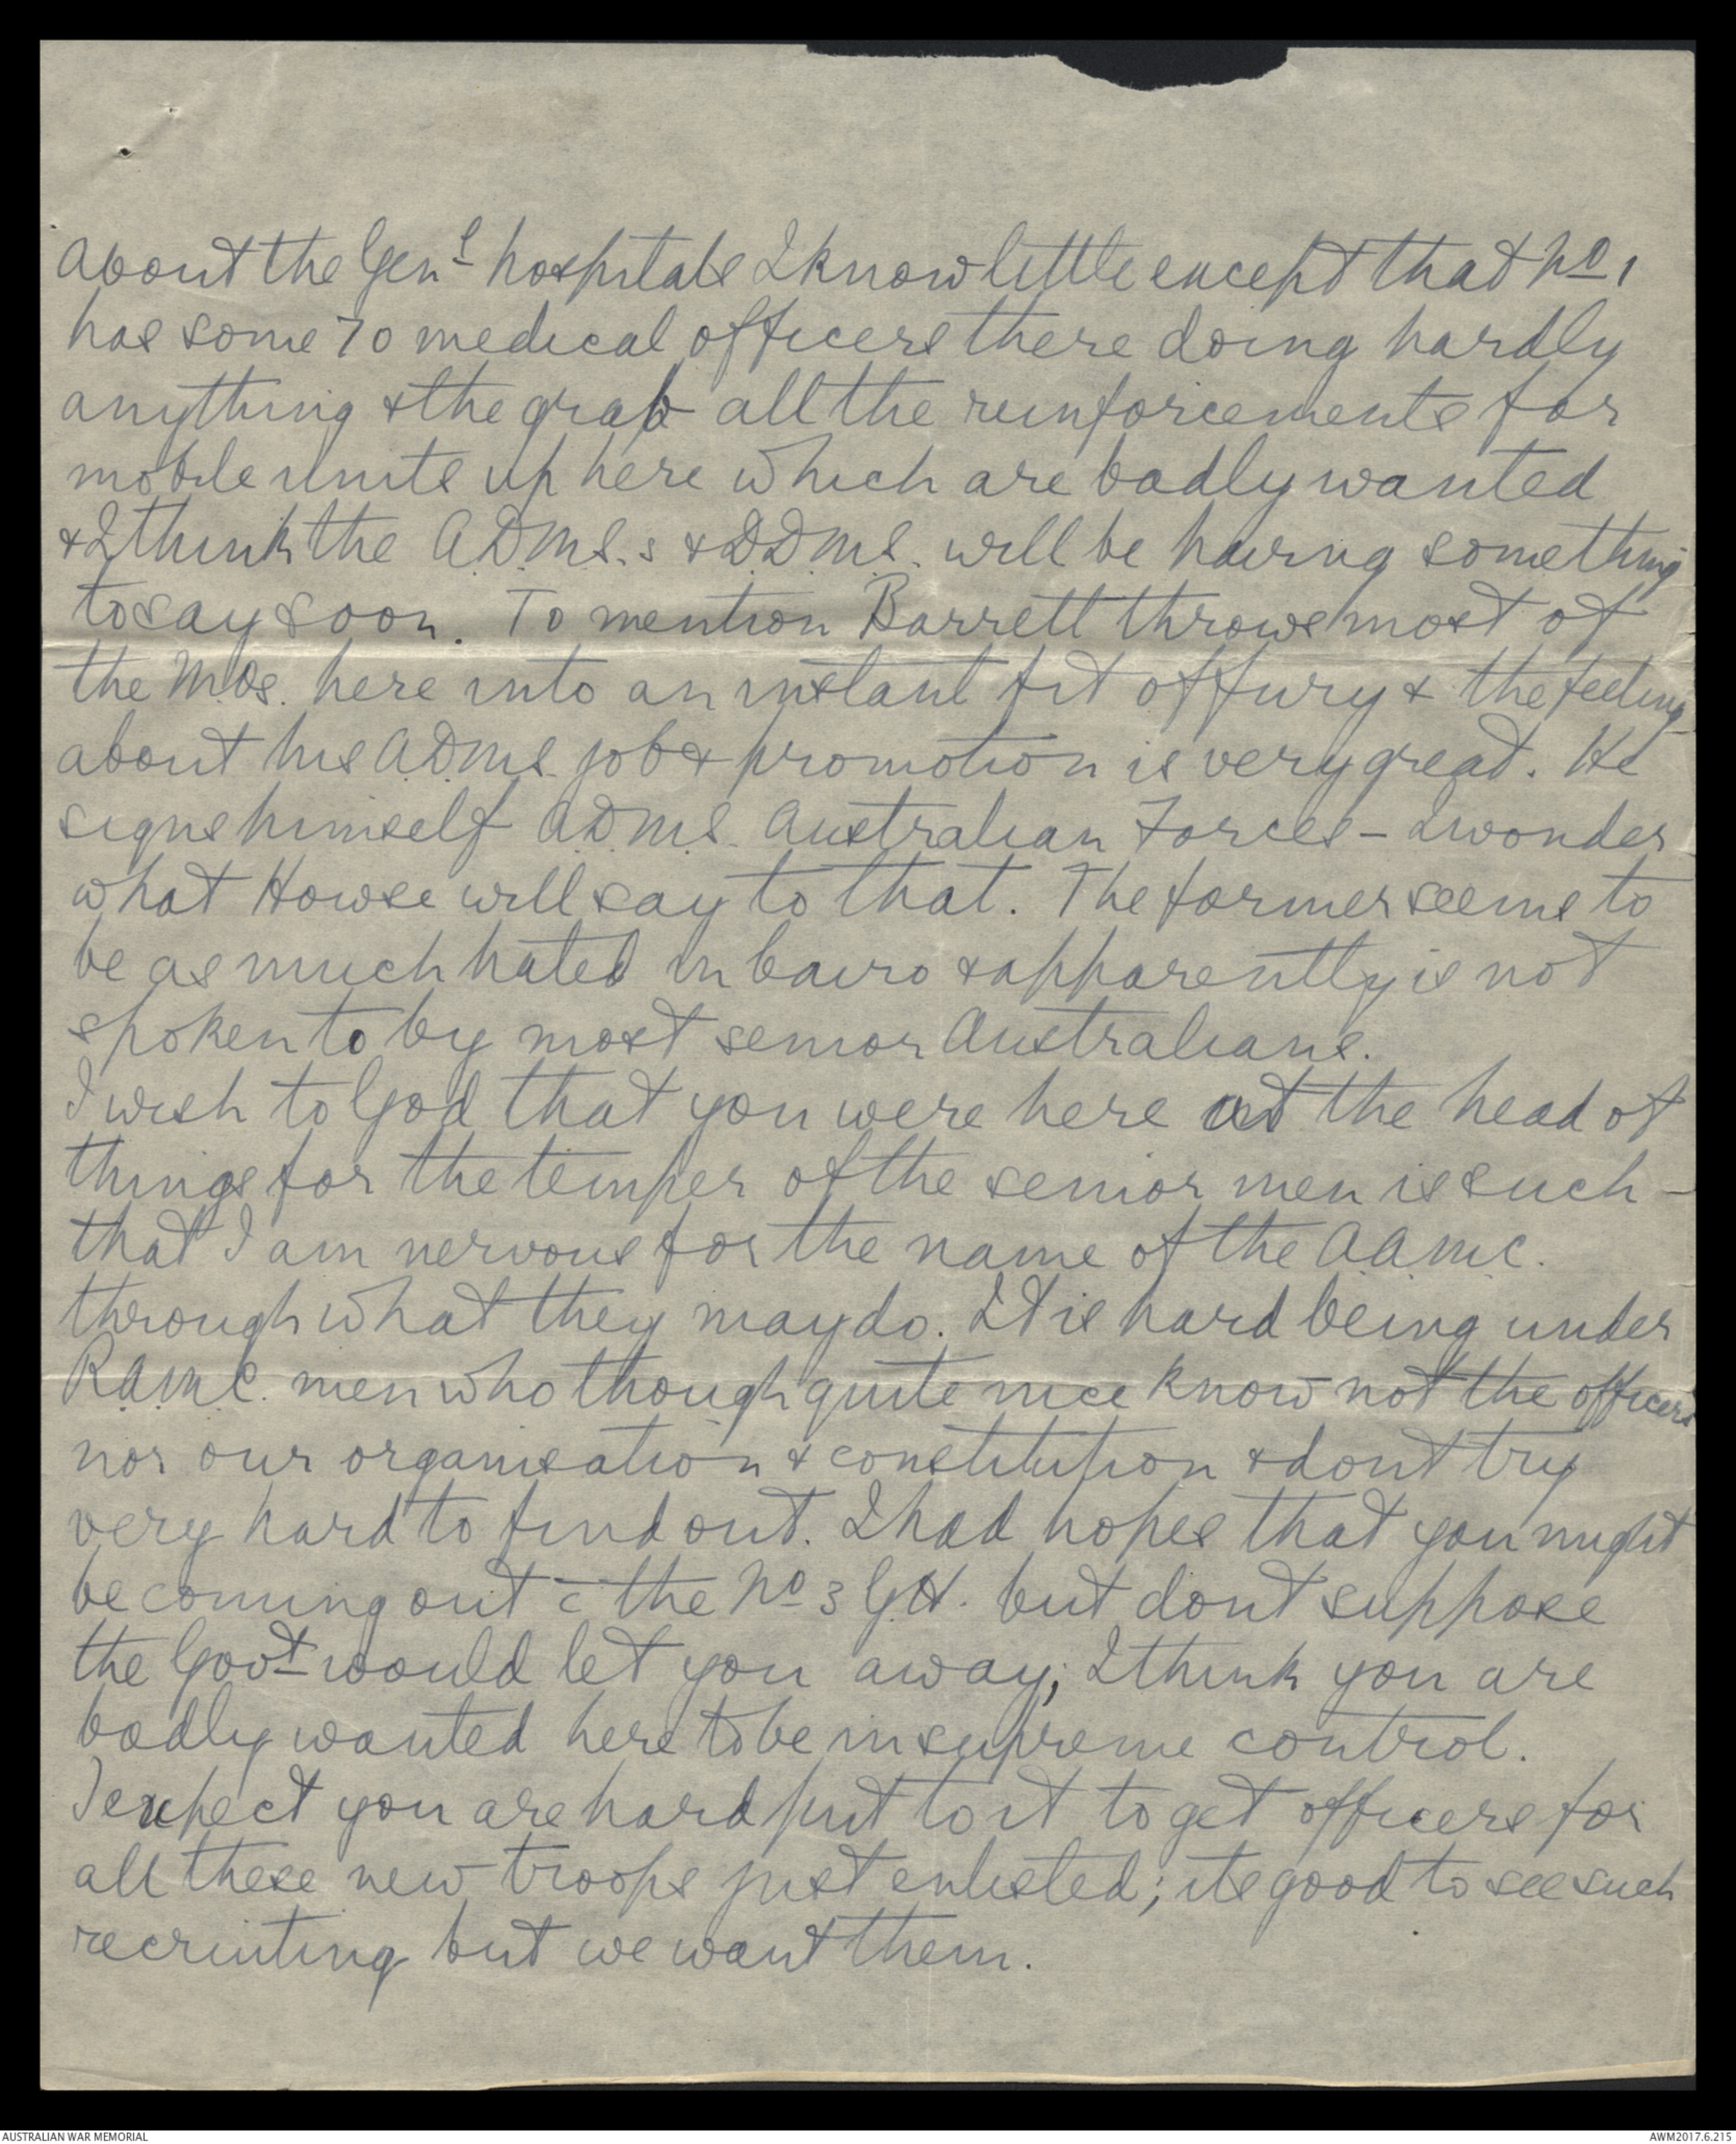 About the Genl hospitals I know little except that No 1
has some 70 medical officers there doing hardly
anything & the grab all the reinforcements for
mobile units up here which are badly wanted
& I think the A.D.M.S.s & D.D.M.S. will be having something
to say soon. To mention Barrett throws most of
the M.Os. here into an instant fit of fury & the feeling
about his A.D.M.S. job & promotion is very great. He
signs himself A.D.M.S. Australian Forces – I wonder
what Howse will say to that. The former seems to
be as much hated in Cairo & apparently is not
spoken to by most senior Australians.
I wish to God that you were here at the head of
things for the temper of the senior men is such –
that I am nervous for the name of the A.A.M.C.
through what they may do. It is hard being under
R.A.M.C. men who though quite nice know not the officers
nor our organisation & constitution & dont try
very hard to find out. I had hopes that you might
be coming out c̄ the No 3 G.H. but dont suppose
the Govt would let you away; I think you are
badly wanted here to be in supreme control.
I expect you are hard put to it to get officers for
all these new troops just enlisted; its good to see such
recruiting but we want them.
AUSTRALIAN WAR MEMORIAL
AWM2017.6.215